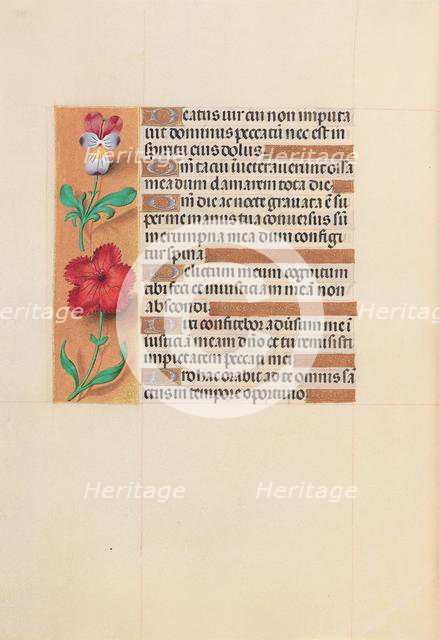 Beatus vir cui non imputa
vit dominus peccatū nec est in
spiritu eius dolus
Qm̄ tacui inveteraverūt ossa
mea dum clamarem tota die
Qm̄ die ac nocte gravata ē su
per me manus tua conversus sū
in erumpna mea dum configi
tur spina
Delictum meum cognitum
tibi feci et iniusticiā meā non
abscondi
Dixi confitebor adūsum me ī
iusticiā meam dn̄o et tu remisisti
impietatem peccati mei
Pro hac orabit ad te omnis sā
ctus in tempore oportuno
Heritage Heritage
Heritage Heritage
Heritage Heritage